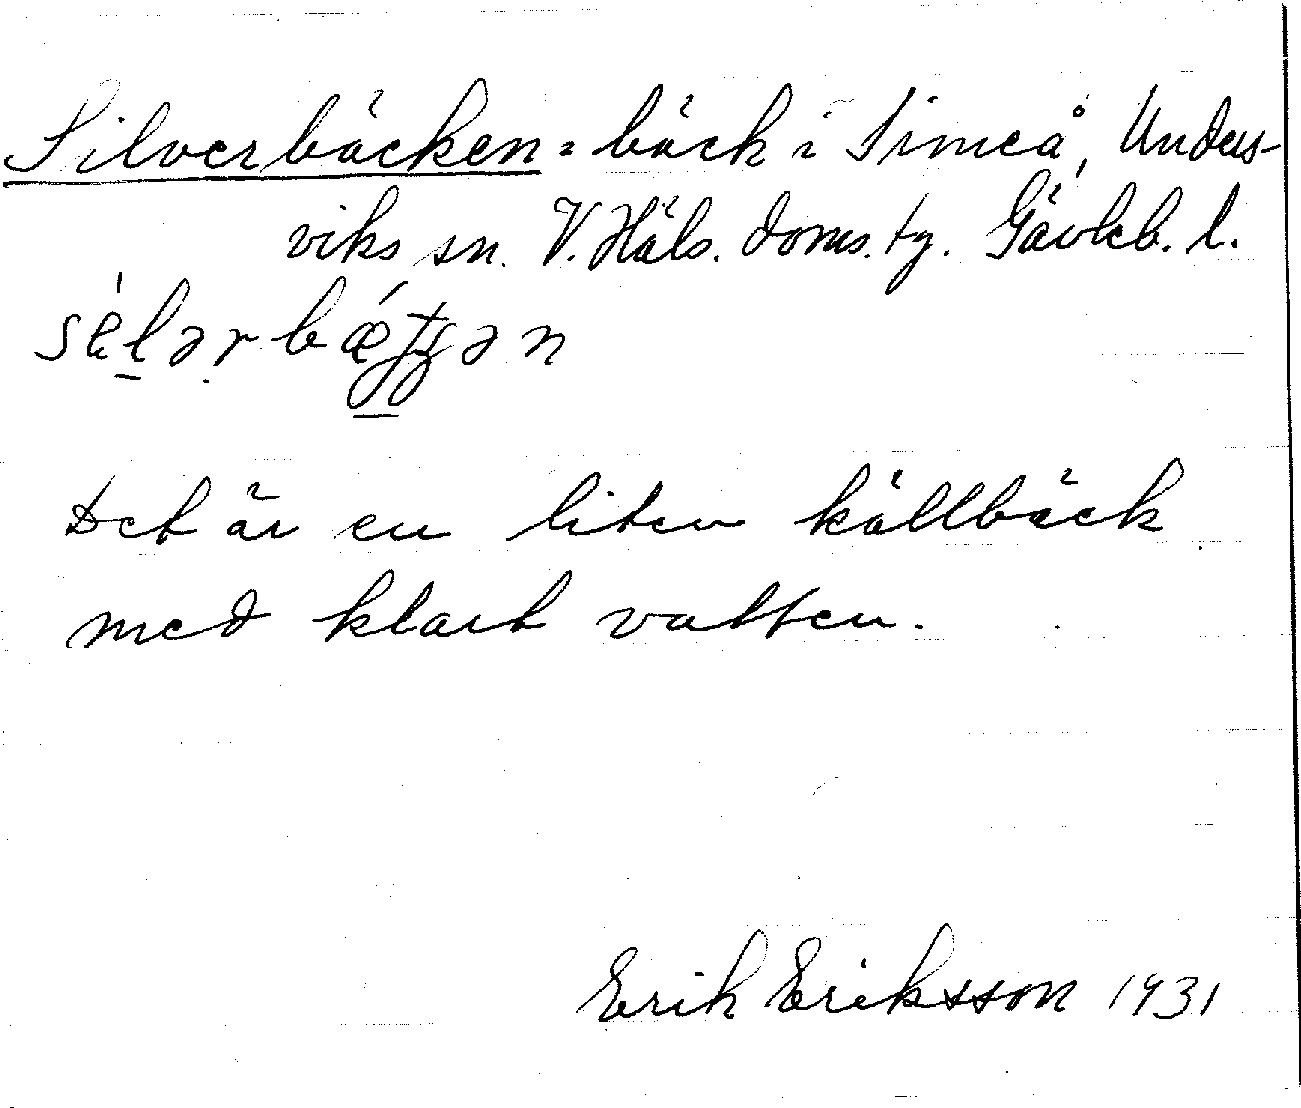 Silverbäcken = bäck i Simeå, Unders-
viks sn. V. Häls. doms. tg. Gävleb. l.
sélərbǽʈʂən
Det är en liten källbäck
med klart vatten.
Erik Eriksson 1931